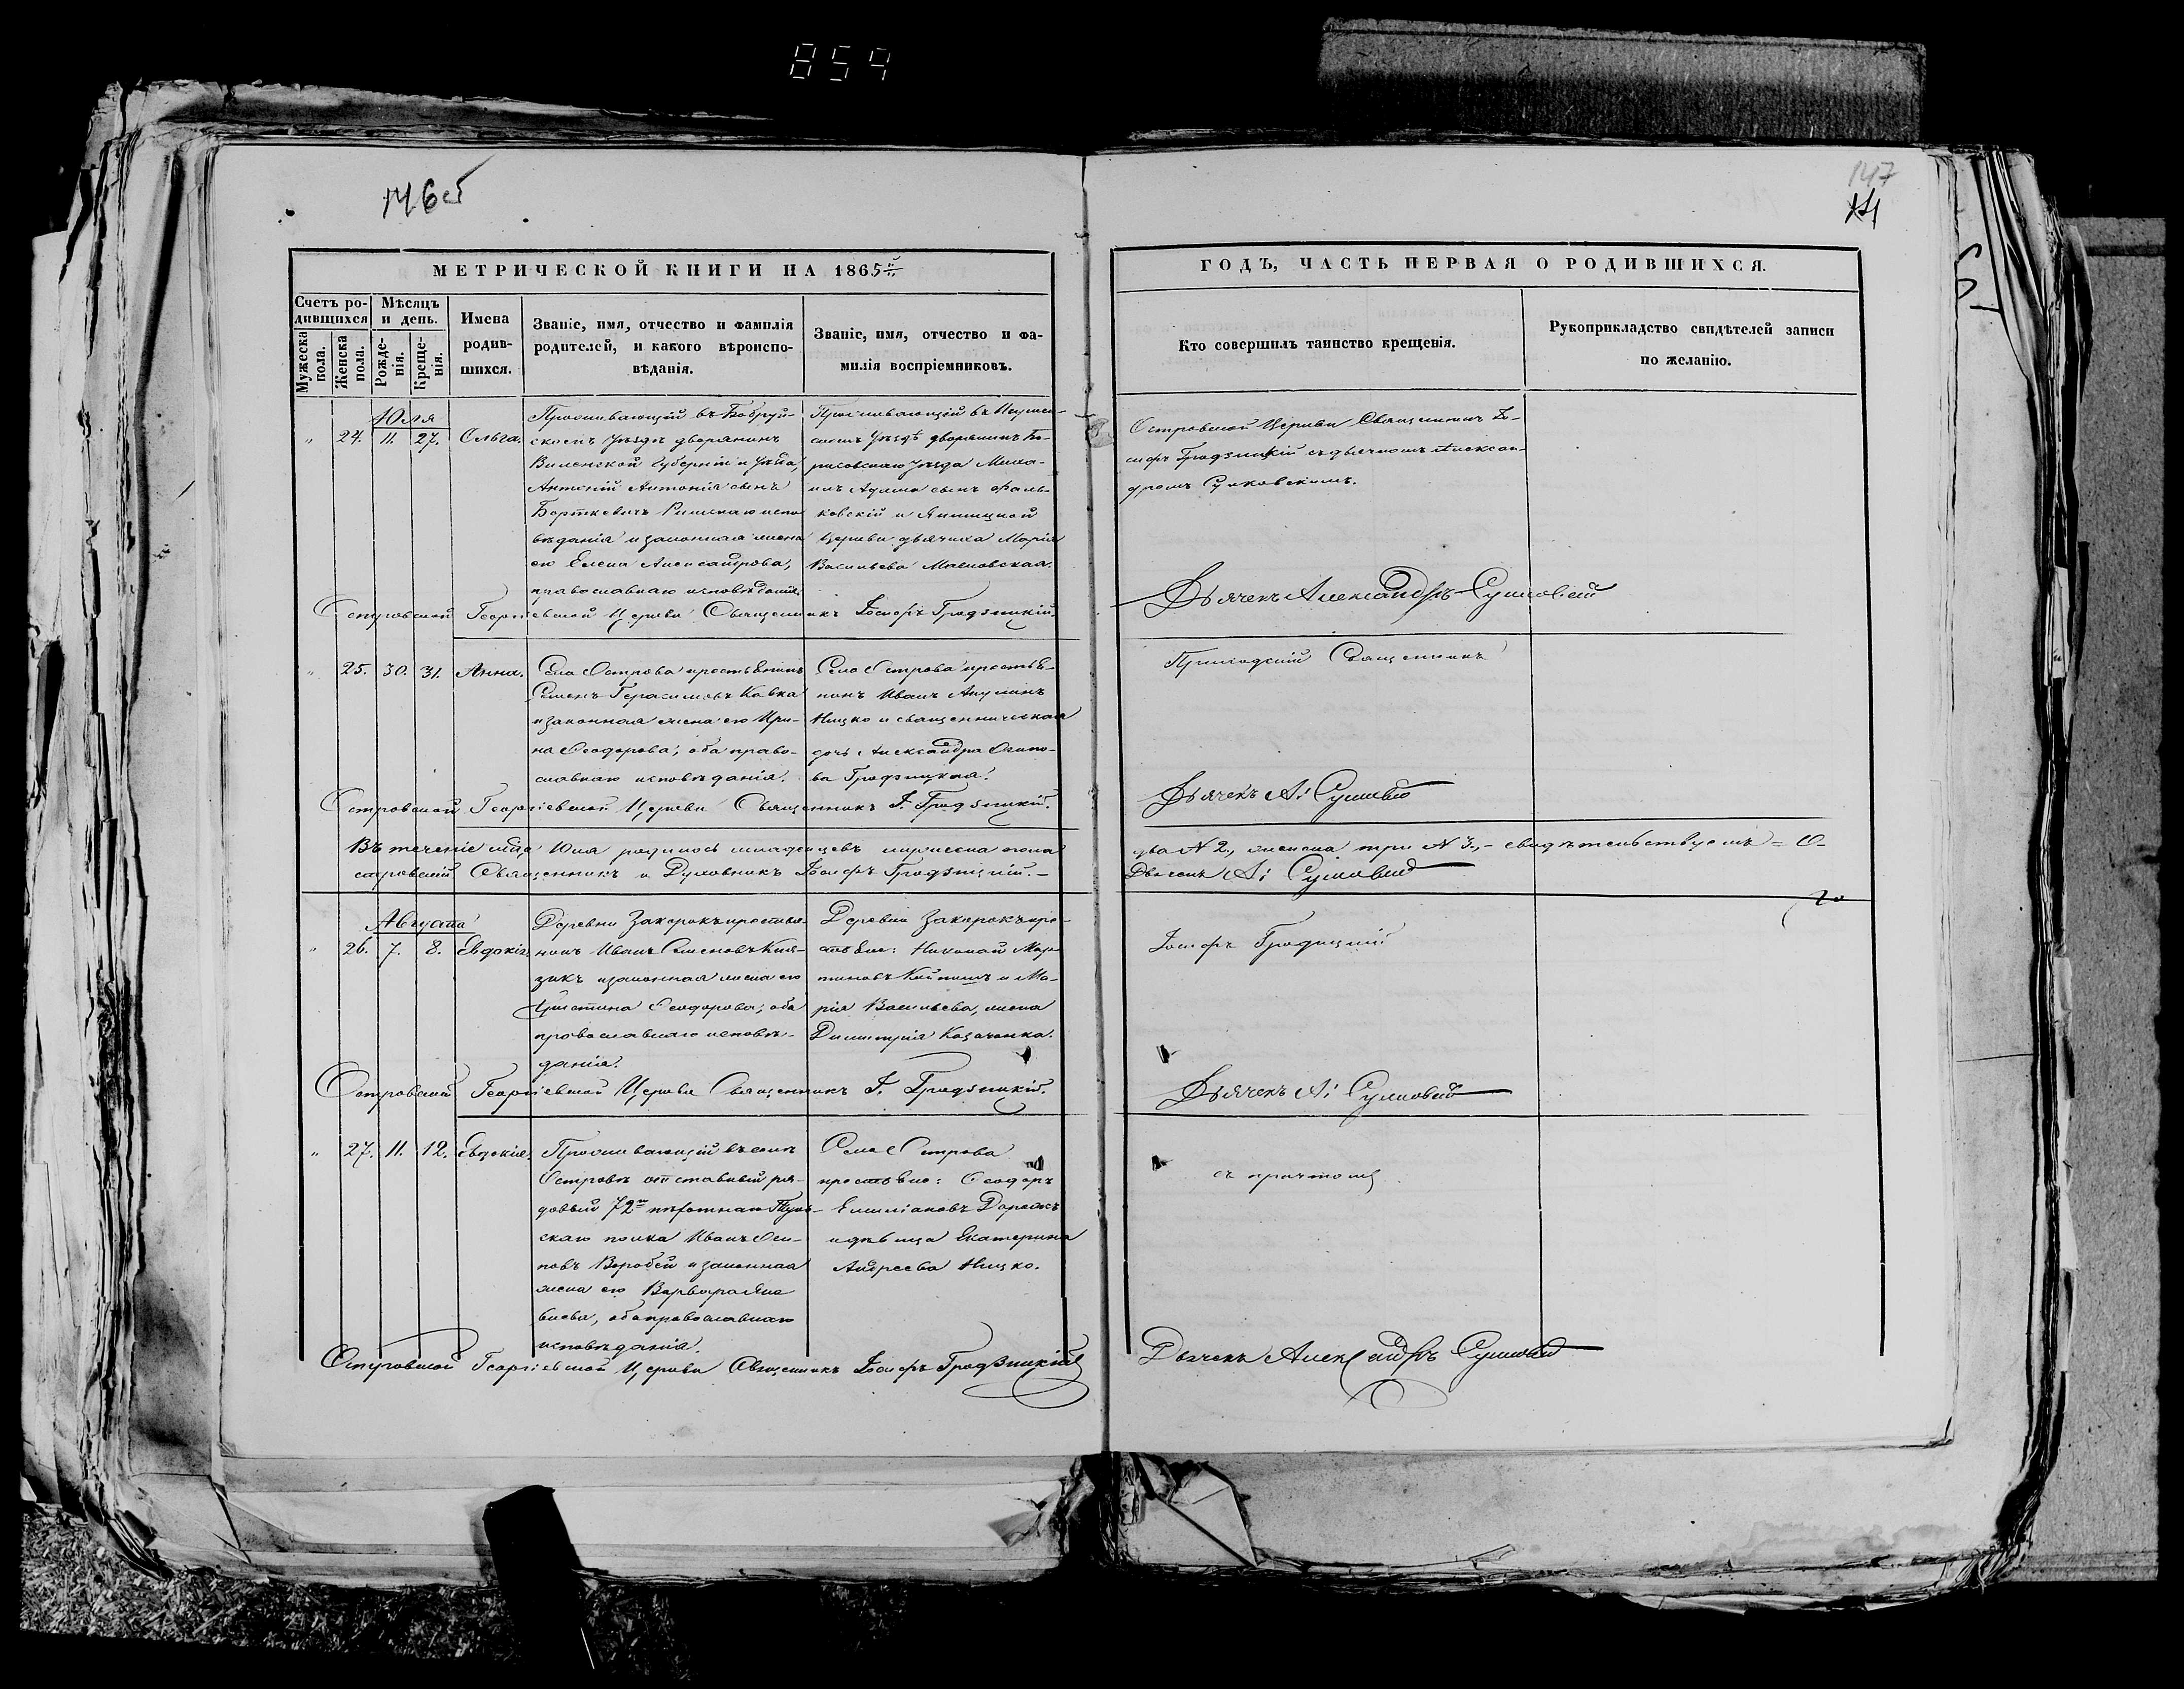 859
146об
147
МЕТРИЧЕСКОЙ КНИГИ НА 1865й
ГОДЪ, ЧАСТЬ ПЕРВАЯ О РОДИВШИХСЯ.
Счетъ ро-
дившихся
Мужеска
пола.
Женска
пола.
Мѣсяцъ
и день.
Рожде-
нія.
Креще-
нія.
Имена
родив-
шихся.
Званіе, имя, отчество и фамилія
родителей, и какого вѣроиспо-
вѣданія.
Званіе, имя, отчество и фа-
милія воспріемниковъ.
Кто совершилъ таинство крещенія.
Рукоприкладство свидѣтелей записи
по желанію.
Юля
" 24. 11. 27. Ольга.
Проживающій въ Бобруй-
скомъ уѣздѣ дворянинъ
Виленской Губерніи и уѣзда,
Антоній Антонія сынъ
Борткевичъ Римскаго испо
вѣданія и законная жена
его Елена Александрова,
православнаго исповѣданія.
Проживающій въ Игумен-
скомъ уѣздѣ дворянинъ Бо-
рисовскаго уѣзда Миха-
илъ Адама сынъ Фаль-
ковскій и
Церкви дьячика Марія
Васильева
Островской Церкви Священникъ Іо-
сифъ Гродзицкій съ дьячкомъ Алексан-
дромъ Сулковскимъ.
Островской Георгіевской Церкви Священникъ Іосифъ Гродзицкій.
Дьячекъ Александръ Сулковскій
" 25. 30. 31. Анна.
Села Острова крестьянинъ
Семенъ Герасимовъ Кавка
и законная жена его Ири-
на Ѳеодорова, оба право-
славнаго исповѣданія.
Села Острова крестья-
нинъ Иванъ
Ницко и священническая
дочь Александра Осипо-
ва Гродзицкая.
Приходскій Священникъ
Островской Георгіевской Церкви Священникъ І. Гродзицкій.
Дьячекъ А: Сулковскій
Въ теченіе мѣца Юля родилось младенцевъ мужеска пола
два N 2., женска три N 3., – свидѣтельствуемъ = О-
стровскій Священникъ и Духовникъ Іосифъ Гродзицкій. –
Дьячекъ А: Сулковскій
Августа
" 26. 7. 8. Евдокія
Деревни Закорокъ крестья-
нинъ Иванъ Семеновъ
зикъ и законная жена его
Христина Ѳеодорова, оба
православнаго исповѣ-
данія.
Деревни Закорокъ кре-
стьяне: Николай Мар-
тиновъ и Ма-
рія Васильева, жена
Димитрія Казаченка.
Іосифъ Гродзицкій
Островской Георгіевской Церкви Священникъ І. Гродзицкій.
Дьячекъ А: Сулковскій
" 27. 11. 12. Евдокія.
Проживающій въ селѣ
Островѣ отставной ря-
довый 72го пѣхотнаго Туль-
скаго полка Иванъ Оси-
повъ Воробей и законная
жена его Варвара
оба православнаго
исповѣданія.
Села Острова
крестьяне: Ѳеодоръ
Емиліановъ
и дѣвица Екатерина
Андреева Ницко.
съ причтомъ
Островской Георгіевской Церкви Священникъ Іосифъ Гродзицкій
Дьячекъ Александръ Сулковскій